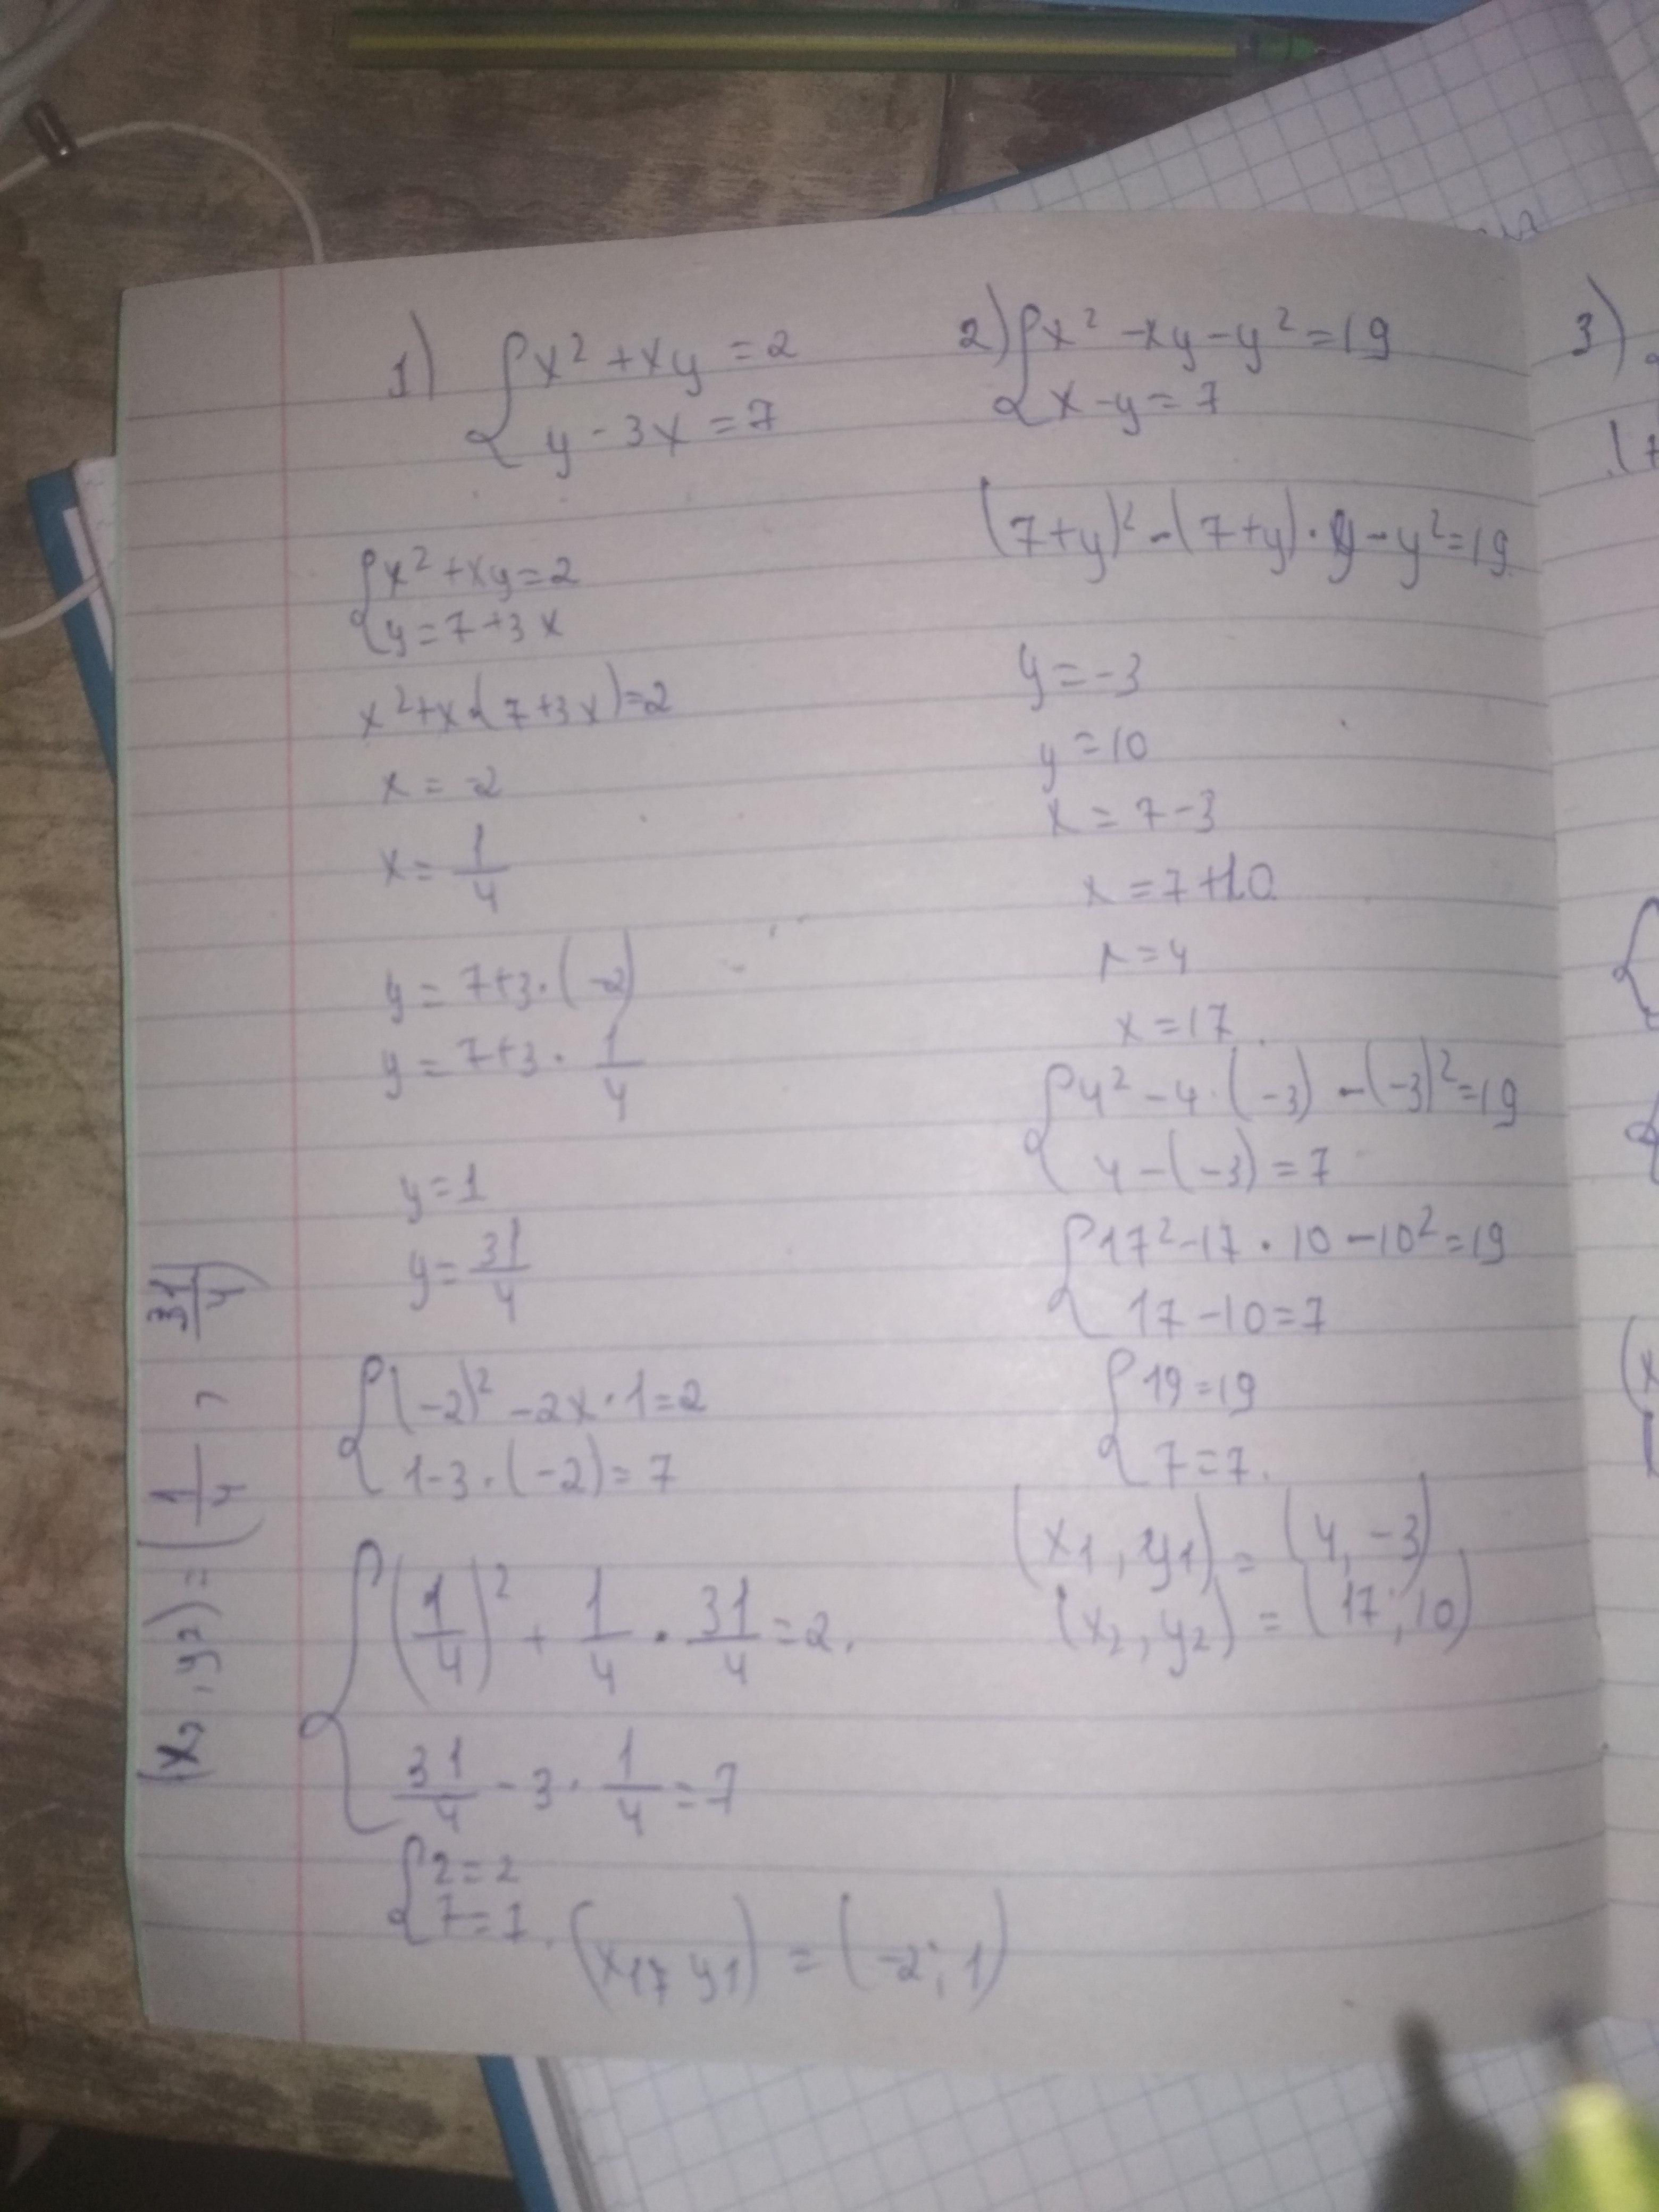 1) { x² + xy = 2
y - 3x = 7
{ x² + xy = 2
y = 7 + 3x
x² + x·(7 + 3x) = 2
x = -2
x = 1/4
y = 7 + 3·(-2)
y = 7 + 3 · 1/4
y = 1
y = 31/4
{ (-2)² - 2x · 1 = 2
1 - 3 · (-2) = 7
{ (1/4)² + 1/4 · 31/4 = 2.
31/4 - 3 · 1/4 = 7
{ 2 = 2
7 = 7.
(x1, y1) = (-2; 1)
(x2, y2) = (1/4, 31/4)
2) { x² - xy - y² = 19
x - y = 7
(7+y)² - (7+y) · y - y² = 19
y = -3
y = 10
x = 7 - 3
x = 7 + 10
x = 4
x = 17
{ 4² - 4 · (-3) - (-3)² = 19
4 - (-3) = 7
{ 17² - 17 · 10 - 10² = 19
17 - 10 = 7
{ 19 = 19
7 = 7.
(x1, y1) = (4, -3)
(x2, y2) = (17; 10)
3)